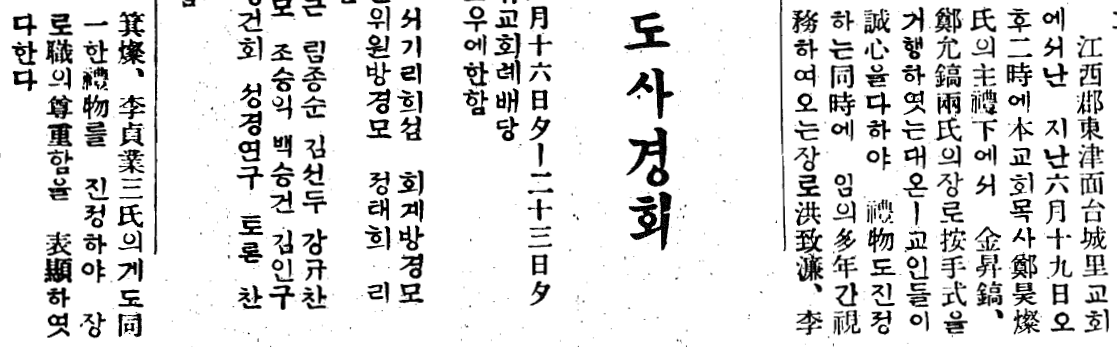 江西郡東津面台城里교회
에서난 지난六月十九日오
후二時에本교회목사鄭昊燦
氏의主禮下에서 金昇鎬、
鄭允鎬兩氏의장로按手式을
거행하엿는대온ー교인들이
誠心을다하야 禮物도진정
하는同時에 임의多年간視
務하여오는장로洪致濂、李
도사경회
月十六日夕ー二十三日夕
교회례배당
우에한함
서기리희섭 회계방경모
위원방경모 정태희 리
림종순 김선두 강규찬
모 조승익 백승건 김인구
건회 성경연구 토론 찬
箕燦、李貞業三氏의게도同
一한禮物를 진정하야 장
로職의尊重함을 表顯하엿
다한다